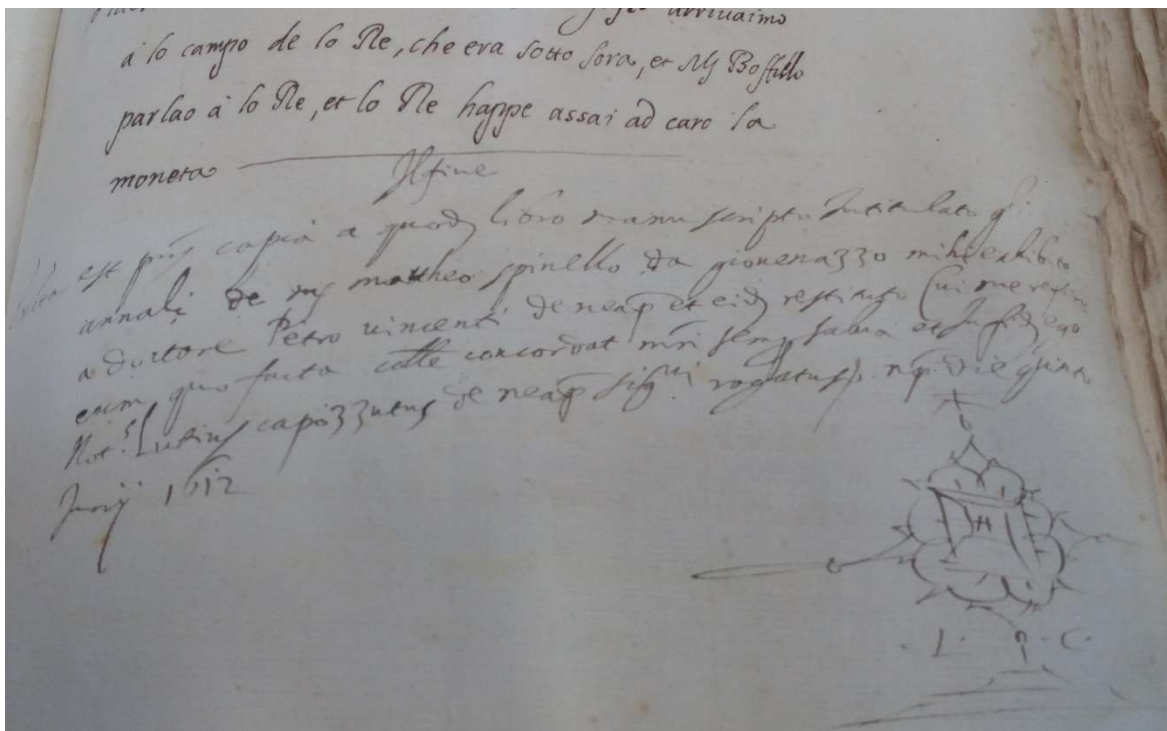 arrivaimo
à lo campo de lo Re, che era sotto sora, et Mß Boffillo
parlao à lo Re, et lo Re happe assai ad caro la
moneta
Il fine
est copia a quodã libro manuscripto Intitulato
annali de mattheo spinello da giovenazzo mihi exhibito
a doctore Petro vincenti de neap et eidẽ restituto Cui me refero
cum quo facta colle concordat semp salva et In fidẽ ego
Not.s Lutius capozzutus de neap rogatus nap. die quinto
Junij 1612
H
. L . C .